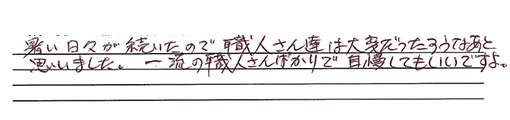 暑い日々が続いたので職人さん達は大変だったろうなあと
思いました。一流の職人さんばかりで自慢してもいいですよ。